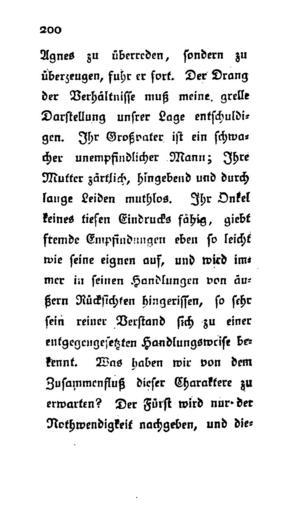 200
Agnes zu überreden, sondern zu
überzeugen, fuhr er fort. Der Drang
der Verhältnisse muß meine grelle
Darstellung unsrer Lage entschuldi-
gen. Ihr Großvater ist ein schwa-
cher unempfindlicher Mann; Ihre
Mutter zärtlich, hingebend und durch
lange Leiden muthlos. Ihr Onkel
keines tiefen Eindrucks fähig, giebt
fremde Empfindungen eben so leicht
wie seine eignen auf, und wird im-
mer in seinen Handlungen von äu-
ßern Rücksichten hingerissen, so sehr
sein reiner Verstand sich zu einer
entgegengesetzten Handlungsweise be-
kennt. Was haben wir von dem
Zusammenfluß dieser Charaktere zu
erwarten? Der Fürst wird nur der
Nothwendigkeit nachgeben, und die-